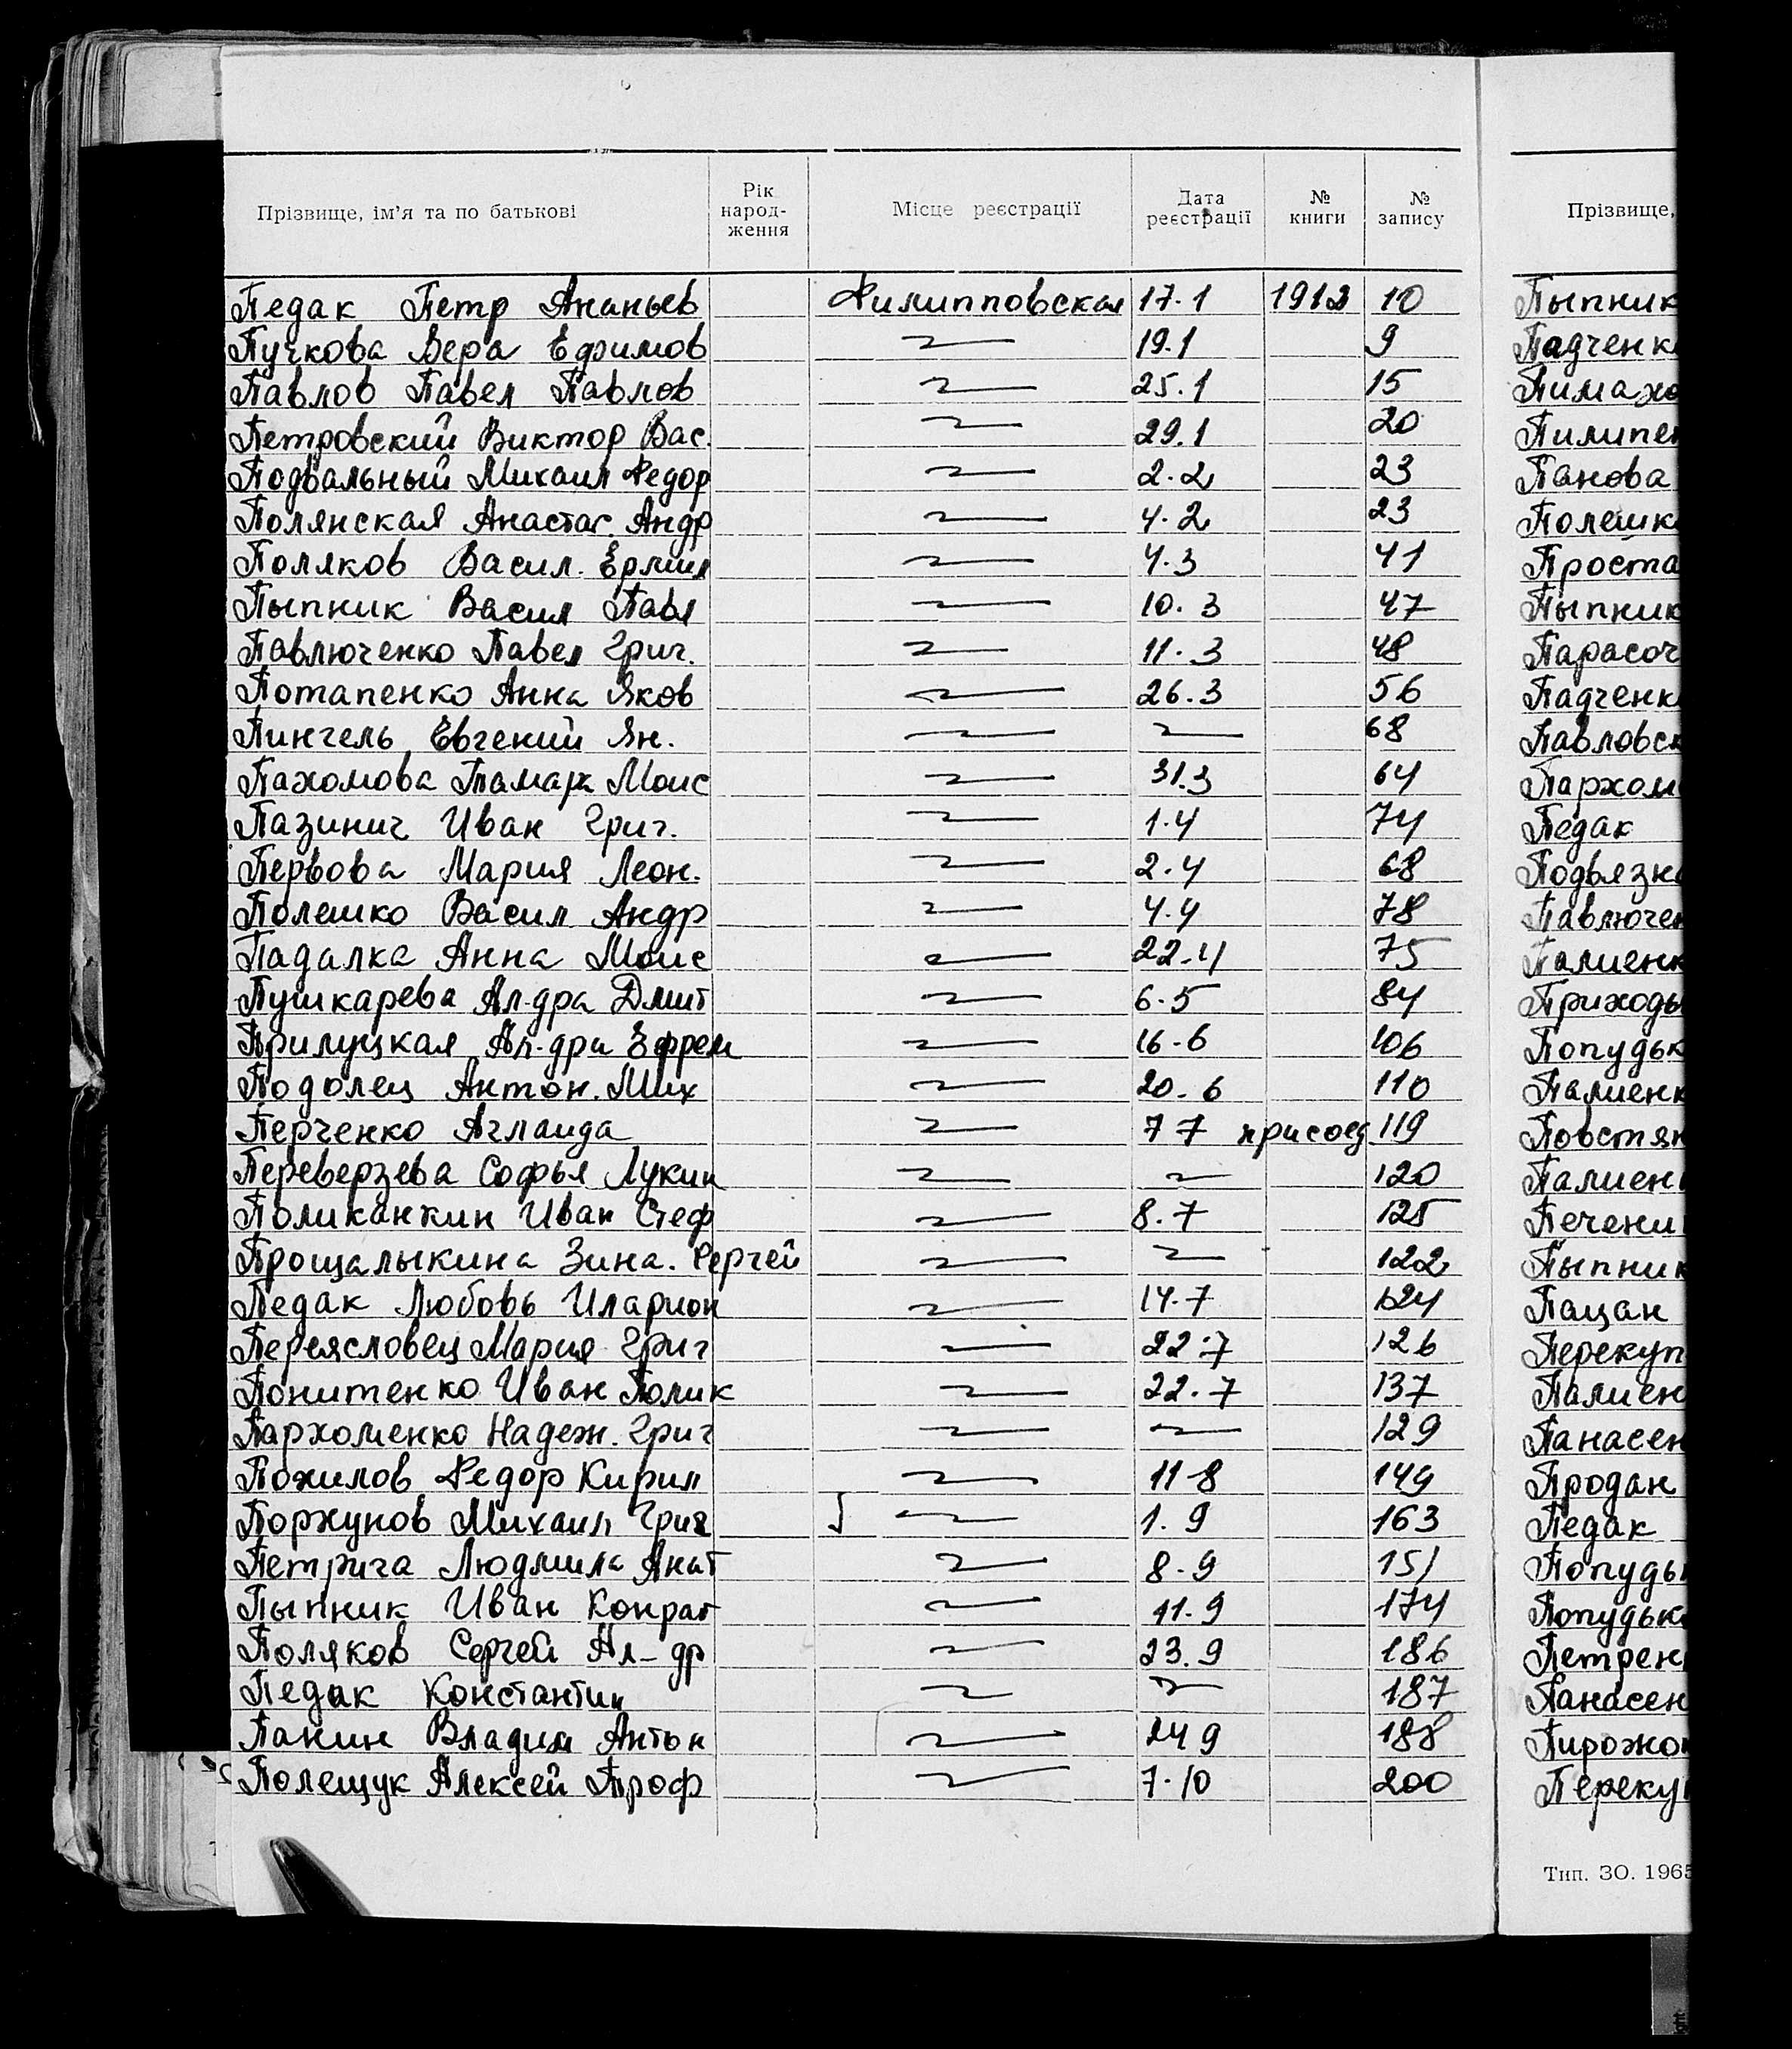 Прізвище, ім'я та по батькові Рік народ- ження Місце реєстрації Дата реєстрації № книги № запису Прізвище,
Педак Петр Ананьев Филипповская 17.1 1912 10
Пучкова Вера Ефимов 〃 19.1 9
Павлов Павел Павлов 〃 25.1 15
Петровский Виктор Вас. 〃 29.1 20
Подвальный Михаил Федор 〃 2.2 23
Полянская Анастас. Андр 〃 4.2 23
Поляков Васил. Ермил 〃 4.3 41
Пыпник Васил Павл 〃 10.3 47
Павлюченко Павел Григ. 〃 11.3 48
Потапенко Анна Яков 〃 26.3 56
Пингель Евгений Ян. 〃 〃 68
Пахомова Тамара Моис 〃 31.3 64
Пазинич Иван Григ. 〃 1.4 74
Первова Мария Леон. 〃 2.4 68
Полешко Васил Андр 〃 4.4 78
Падалка Анна Моис 〃 22.4 75
Пушкарева Ал-дра Дмит 〃 6.5 84
Прилуцкая Ал-дра Ефрем 〃 16.6 106
Подолец Антон. Мих 〃 20.6 110
Перченко Аглаида 〃 7 7 присоед 119
Переверзева Софья Лукин 〃 〃 120
Поликанкин Иван Стеф 〃 8.7 125
Прощалыкина Зина. Сергей 〃 〃 122
Педак Любовь Иларион 〃 14.7 124
Переясловец Мария Григ 〃 22.7 126
Понитенко Иван Полик 〃 22.7 137
Пархоменко Надеж. Григ 〃 〃 129
Пожилов Федор Кирил 〃 11-8 149
Поржунов Михаил Григ 〃 1.9 163
Петрича Людмила Анат 〃 8.9 151
Пыпник Иван Конрат 〃 11.9 174
Поляков Сергей Ал-др 〃 23.9 186
Педак Константин 〃 〃 187
Панин Владим Антон 〃 24 9 188
Полещук Алексей Троф 〃 7.10 200
Пыпник
Падченк
Пимахо
Пилипен
Панова
Полешк
Проста
Пыпник
Парасоч
Падченк
Павловск
Пархом
Педак
Подвязн
Павлючен
Палиенк
Приходь
Попудьк
Палиенк
Повстян
Палиен
Печени
Пыпник
Пацан
Перекуп
Палиен
Панасен
Продан
Педак
Попудь
Попудьк
Петрен
Панасен
Пирожо
Переку
Тип. ЗО. 1965